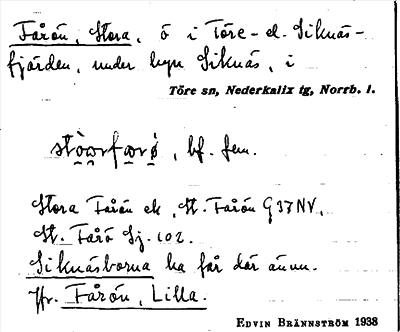 Fårön, Stora, ö i Töre- el. Siknäs-
fjärden, under byn Siknäs, i
Töre sn, Nederkalix tg, Norrb. l.
, bf. fem.
Stora Fårön ek, St. Fårön G37NV,
St. Fårö Sj. 102.
Siknäsborna ha får där ännu.
Jfr. Fårön, Lilla.
EDVIN BRÄNNSTRÖM 1938